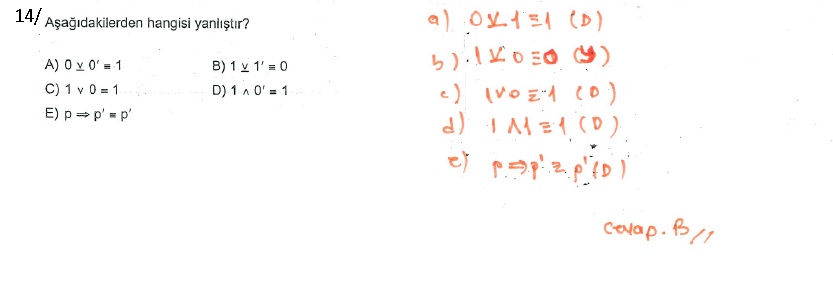 14/ Aşağıdakilerden hangisi yanlıştır?
A) 0 ⊻ 0′ ≡ 1 B) 1 ⊻ 1′ ≡ 0
C) 1 ∨ 0 ≡ 1 D) 1 ∧ 0′ ≡ 1
E) p ⇒ p′ ≡ p′
a) 0 ⊻ 1 ≡ 1 (D)
b) 1 ⊻ 0 ≡ 0 (Y)
c) 1 ∨ 0 ≡ 1 (D)
d) 1 ∧ 1 ≡ 1 (D)
e) p ⇒ p' ≡ p' (D)
cevap. B //